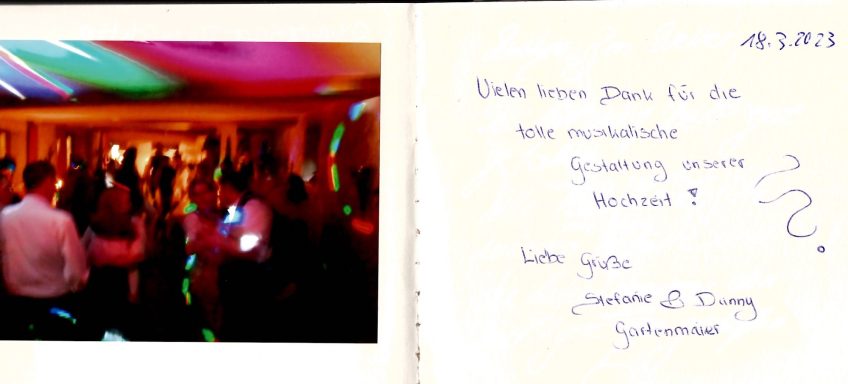 18.3.2023
Vielen lieben Dank für die
tolle musikalische
Gestaltung unserer
Hochzeit!
Liebe Grüße
Stefanie & Danny
Gartenmaier